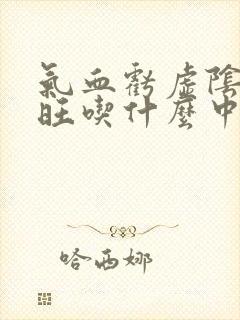 氣血虧虛陰
旺喫什麼中
哈西娜